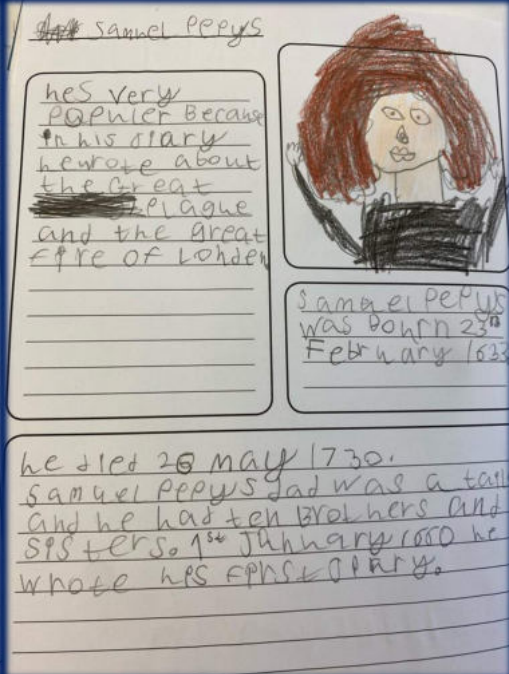 Samuel Pepys
hes very
populer Because
in his diary
he wrote about
the Great
Plague
and the great
fire of Londen
Samuel Pepys
was bourn 23
February 1633
he died 26 may 1730.
Samuel Pepys dad was a tail
and he had ten Brothers and
sisters. 1st January 1660 he
wrote his first diary.